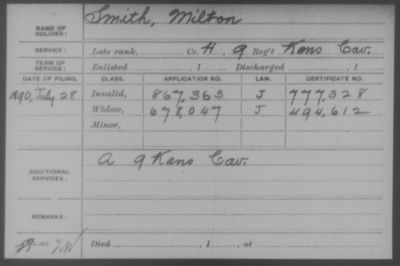 Smith, Milton
NAME OF SOLDIER:
SERVICE: Late rank, Co. H 9 Reg't Kans Cav.
TERM OF SERVICE: Enlisted , 1 Discharged , 1
DATE OF FILING. CLASS. APPLICATION NO. LAW. CERTIFICATE NO.
1890, July 28 Invalid, 867,363 J 777,328
Widow, 678,047 J 494,612
Minor,
ADDITIONAL SERVICES: A 9 Kans Cav.
REMARKS:
Died , 1 , at